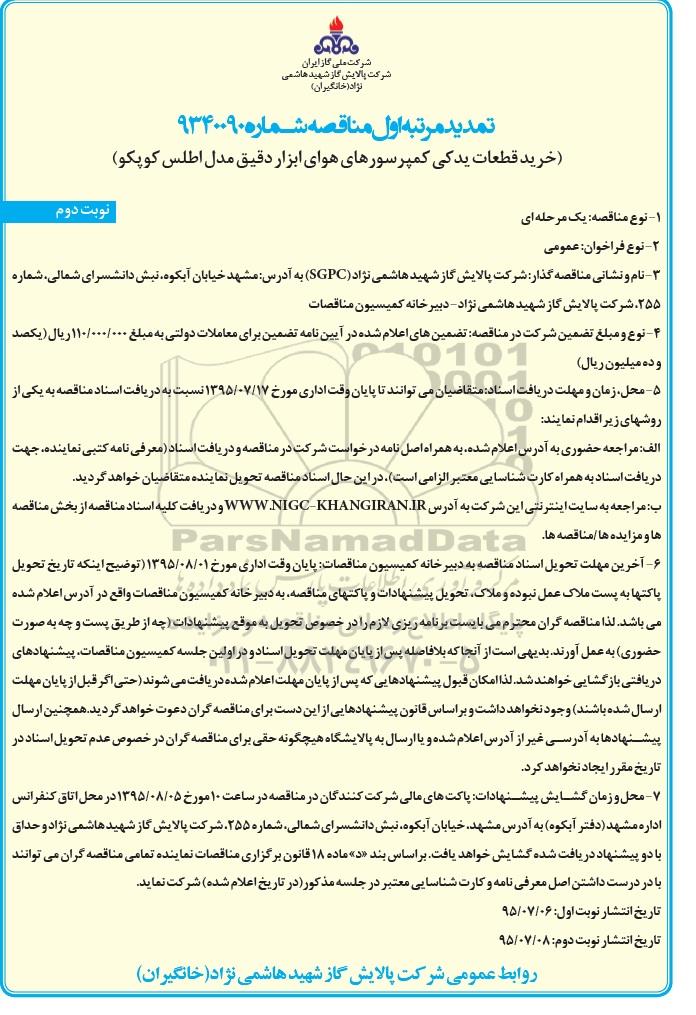 شرکت ملی گاز ایران
شرکت پالایش گاز شهید هاشمی
نژاد(خانگیران)
تمدید مرتبه اول مناقصه شماره ۹۳۴۰۰۹۰
(خرید قطعات یدکی کمپرسورهای هوای ابزار دقیق مدل اطلس کوپکو)
نوبت دوم
۱- نوع مناقصه: یک مرحله ای
۲- نوع فراخوان: عمومی
۳- نام و نشانی مناقصه گذار: شرکت پالایش گاز شهید هاشمی نژاد (SGPC) به آدرس: مشهد خیابان آبکوه، نبش دانشسرای شمالی، شماره
۲۵۵، شرکت پالایش گاز شهید هاشمی نژاد - دبیرخانه کمیسیون مناقصات
۴- نوع و مبلغ تضمین شرکت در مناقصه: تضمین های اعلام شده در آیین نامه تضمین برای معاملات دولتی به مبلغ ۱۱۰/۰۰۰/۰۰۰ ریال (یکصد
و ده میلیون ریال)
۵- محل، زمان و مهلت دریافت اسناد: متقاضیان می توانند تا پایان وقت اداری مورخ ۱۳۹۵/۰۷/۱۷ نسبت به دریافت اسناد مناقصه به یکی از
روشهای زیر اقدام نمایند:
الف: مراجعه حضوری به آدرس اعلام شده، به همراه اصل نامه درخواست شرکت در مناقصه و دریافت اسناد (معرفی نامه کتبی نماینده، جهت
دریافت اسناد به همراه کارت شناسایی معتبر الزامی است)، در این حال اسناد مناقصه تحویل نماینده متقاضیان خواهد گردید.
ب: مراجعه به سایت اینترنتی این شرکت به آدرس WWW.NIGC-KHANGIRAN.IR و دریافت کلیه اسناد مناقصه از بخش مناقصه
ها و مزایده ها/مناقصه ها.
۶- آخرین مهلت تحویل اسناد مناقصه به دبیرخانه کمیسیون مناقصات: پایان وقت اداری مورخ ۱۳۹۵/۰۸/۰۱ (توضیح اینکه تاریخ تحویل
پاکتها به پست ملاک عمل نبوده و ملاک، تحویل پیشنهادات و پاکتهای مناقصه، به دبیرخانه کمیسیون مناقصات واقع در آدرس اعلام شده
می باشد. لذا مناقصه گران محترم می بایست برنامه ریزی لازم را در خصوص تحویل به موقع پیشنهادات (چه از طریق پست و چه به صورت
حضوری) به عمل آورند. بدیهی است از آنجا که بلافاصله پس از پایان مهلت تحویل اسناد و در اولین جلسه کمیسیون مناقصات، پیشنهادهای
دریافتی بازگشایی خواهند شد. لذا امکان قبول پیشنهادهایی که پس از پایان مهلت اعلام شده دریافت می شوند (حتی اگر قبل از پایان مهلت
ارسال شده باشند) وجود نخواهد داشت و براساس قانون پیشنهادهایی از این دست برای مناقصه گران دعوت خواهد گردید. همچنین ارسال
پیشنهادها به آدرسی غیر از آدرس اعلام شده و یا ارسال به پالایشگاه هیچگونه حقی برای مناقصه گران در خصوص عدم تحویل اسناد در
تاریخ مقرر ایجاد نخواهد کرد.
۷- محل و زمان گشایش پیشنهادات: پاکت های مالی شرکت کنندگان در مناقصه در ساعت ۱۰ مورخ ۱۳۹۵/۰۸/۰۵ در محل اتاق کنفرانس
اداره مشهد (دفتر آبکوه) به آدرس مشهد، خیابان آبکوه، نبش دانشسرای شمالی، شماره ۲۵۵، شرکت پالایش گاز شهید هاشمی نژاد و حداق
با دو پیشنهاد دریافت شده گشایش خواهد یافت. براساس بند «د» ماده ۱۸ قانون برگزاری مناقصات نماینده تمامی مناقصه گران می توانند
با در درست داشتن اصل معرفی نامه و کارت شناسایی معتبر در جلسه مذکور (در تاریخ اعلام شده) شرکت نماید.
تاریخ انتشار نوبت اول: ۹۵/۰۷/۰۶
تاریخ انتشار نوبت دوم: ۹۵/۰۷/۰۸
روابط عمومی شرکت پالایش گاز شهید هاشمی نژاد (خانگیران)
ParsNamadData
۰۲۱-۸۸۳۴۹۶۷۰-۵